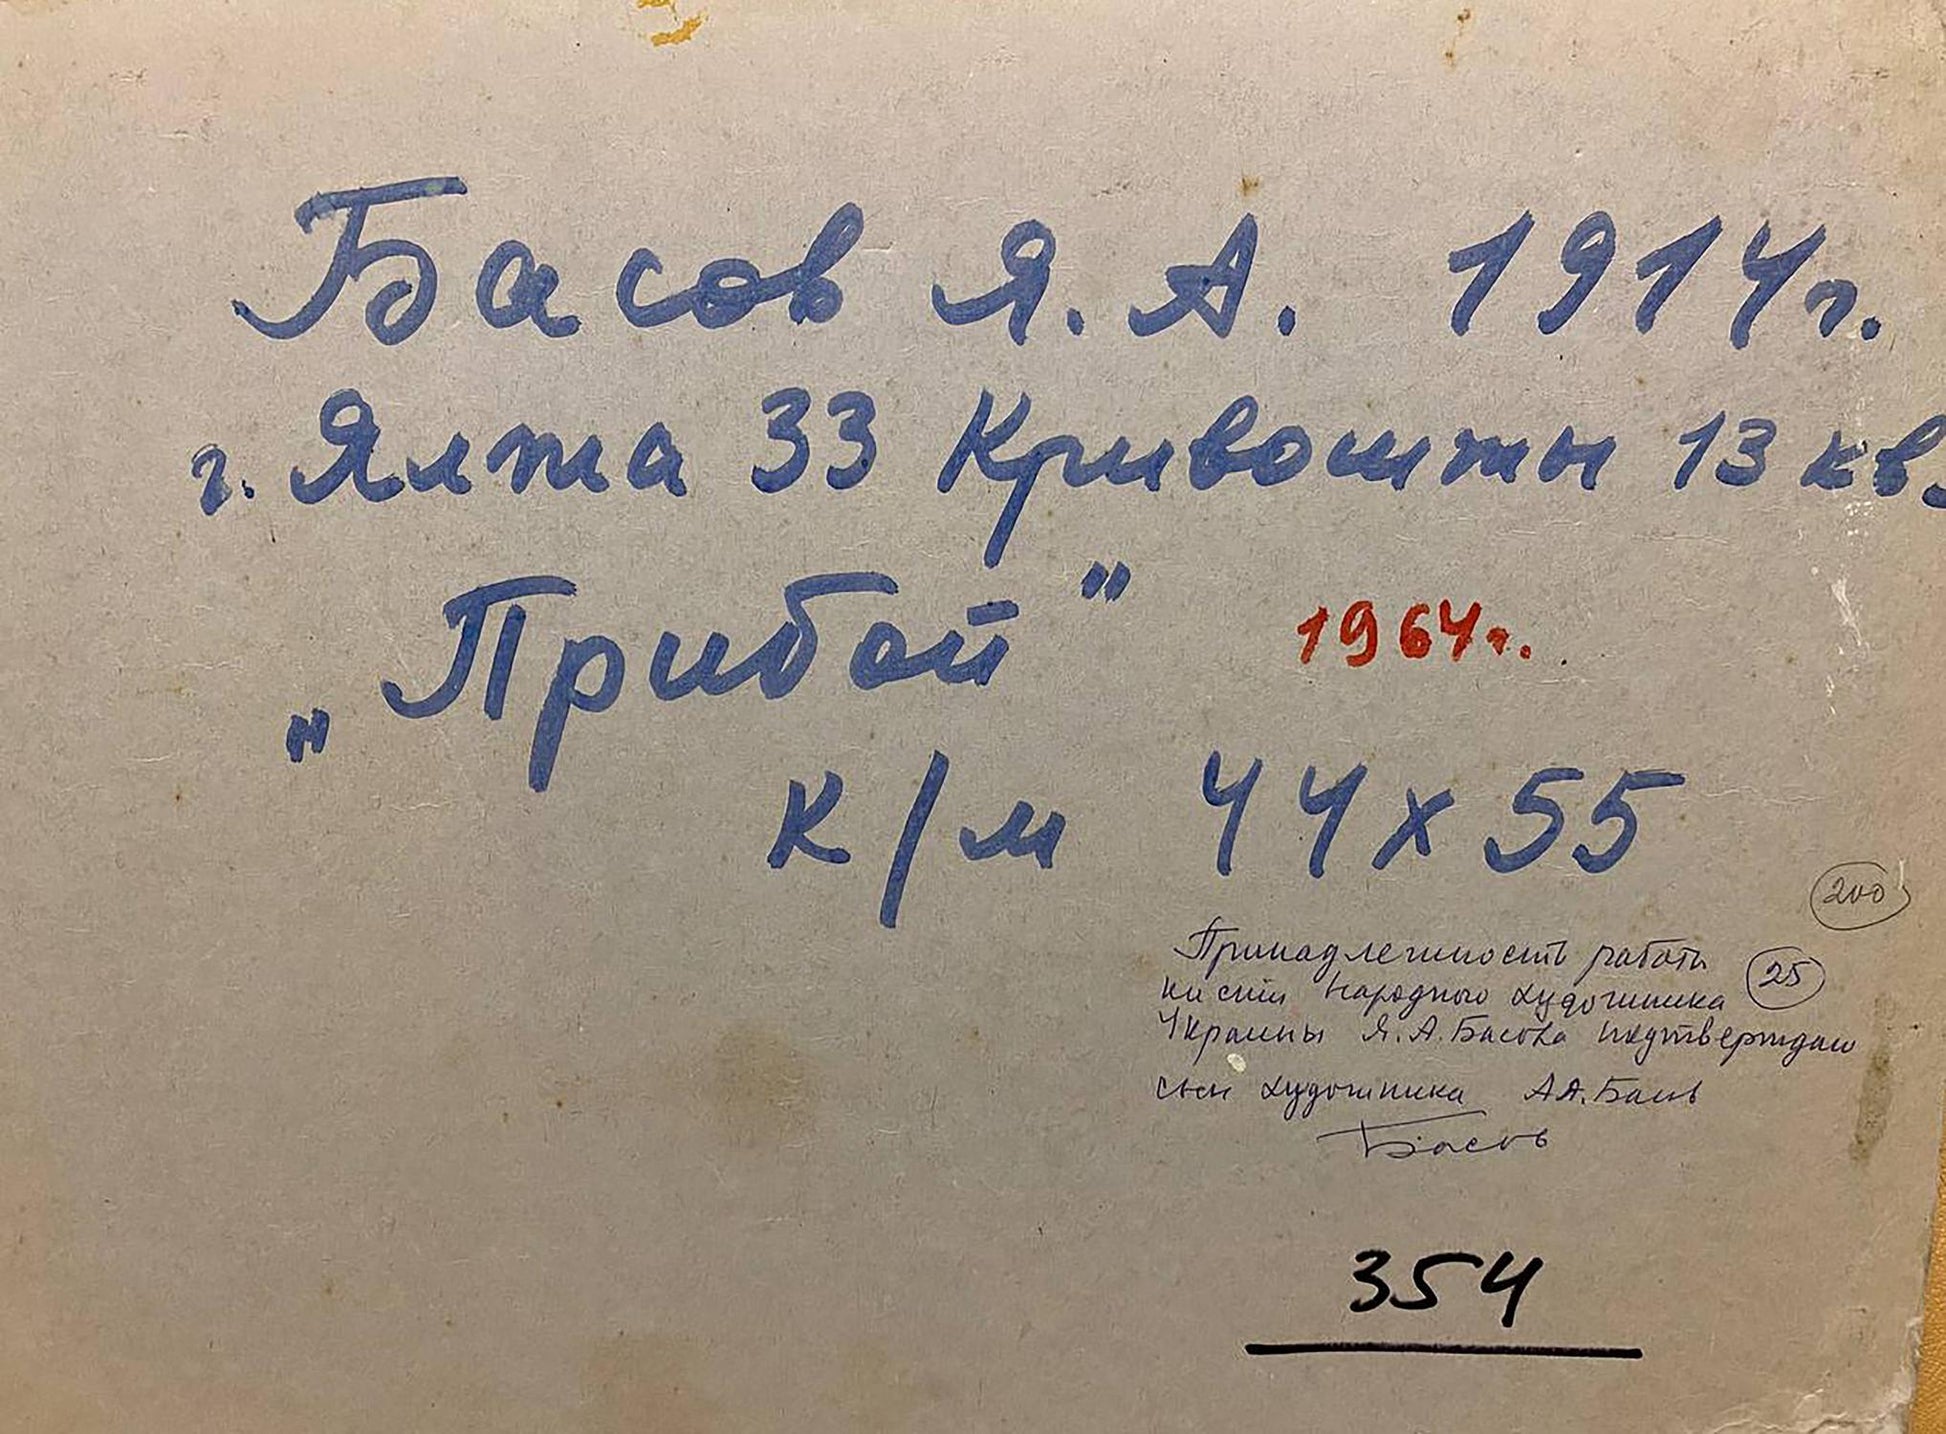 Басов Я. А. 1914г.
г. Ялта 33 Кривошты 13 кв.
„Прибой" 1964г.
к/м 44х55
200
Принадлежность работы 25
кисти Народного художника
Украины Я.А.Басова подтверждаю
сын художника А.Я.Басов
Басов
354